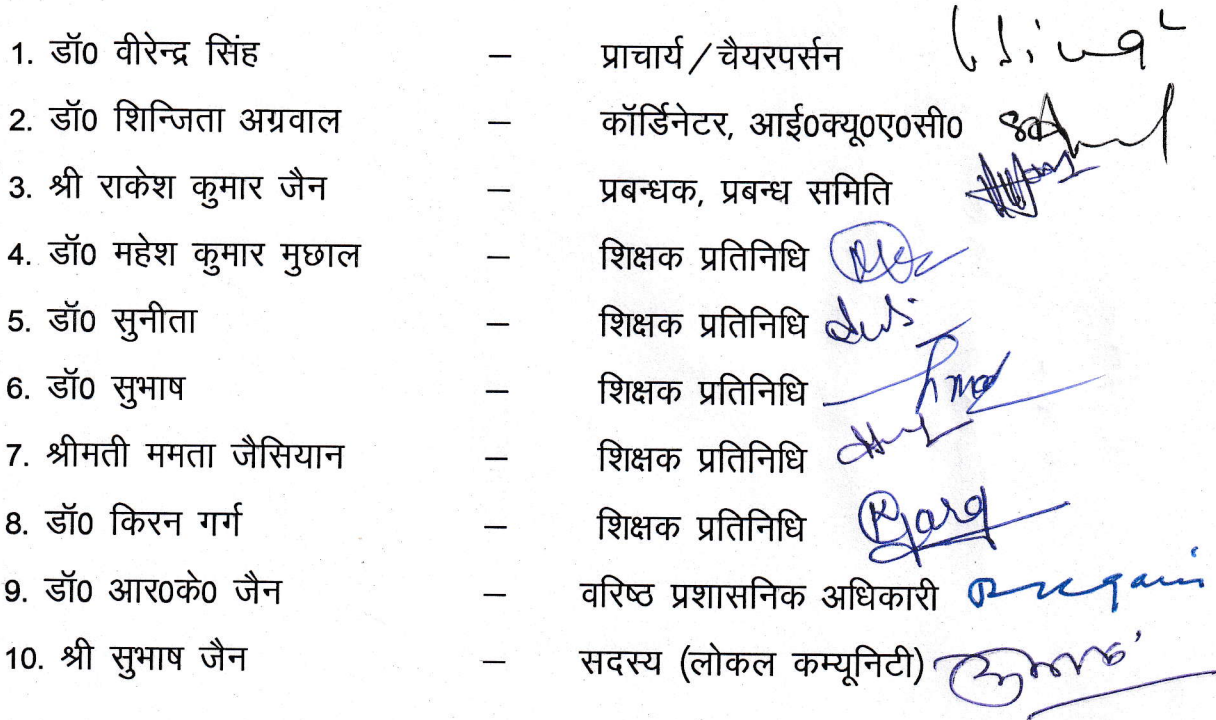 1. डॉ0 वीरेन्द्र सिंह – प्राचार्य / चैयरपर्सन
2. डॉ0 शिन्जिता अग्रवाल – कॉर्डिनेटर, आई0क्यू0ए0सी0
3. श्री राकेश कुमार जैन – प्रबन्धक, प्रबन्ध समिति
4. डॉ0 महेश कुमार मुछाल – शिक्षक प्रतिनिधि
5. डॉ0 सुनीता – शिक्षक प्रतिनिधि
6. डॉ0 सुभाष – शिक्षक प्रतिनिधि
7. श्रीमती ममता जैसियान – शिक्षक प्रतिनिधि
8. डॉ0 किरन गर्ग – शिक्षक प्रतिनिधि Kgarg
9. डॉ0 आर0के0 जैन – वरिष्ठ प्रशासनिक अधिकारी
10. श्री सुभाष जैन – सदस्य (लोकल कम्यूनिटी)